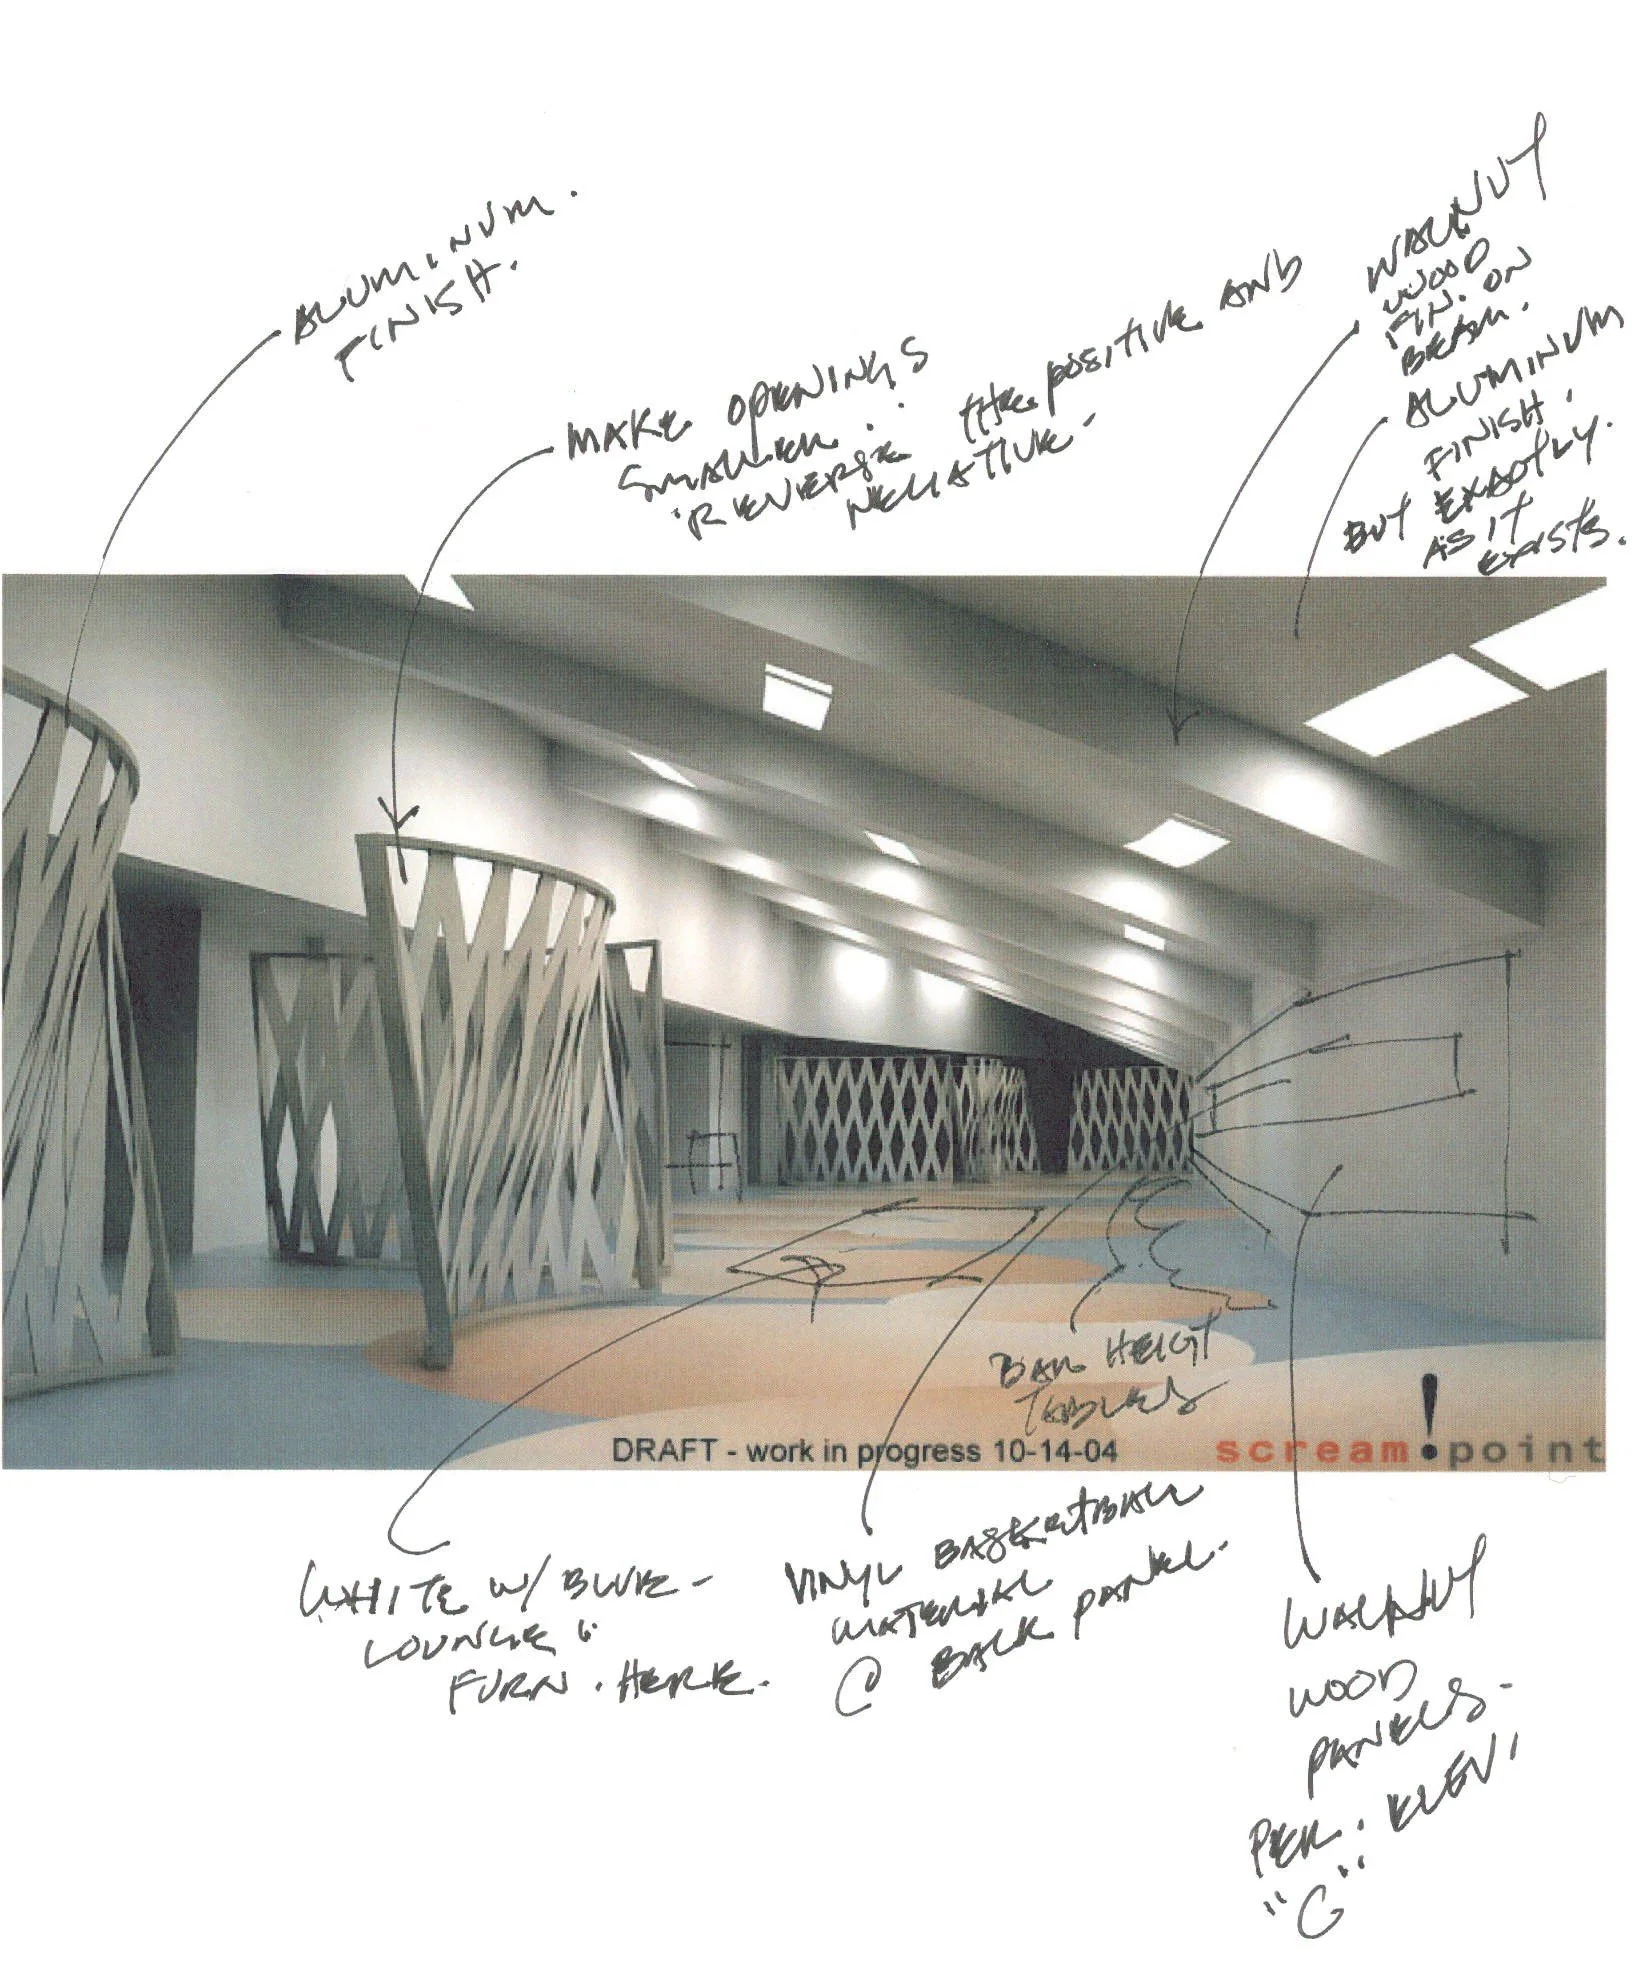 ALUMINUM.
FINISH.
MAKE OPENINGS
SMALLER.
"REVERSE THE POSITIVE AND
NEGATIVE-
WALNUT
WOOD
FIN. ON
BEAM.
ALUMINUM
FINISH.
BUT EXACTLY.
AS IT
EXISTS.
BAR HEIGT
TABLES
DRAFT - work in progress 10-14-04
scream!point
WHITE W/ BLUE-
LOUNGE"
FURN. HERE.
VINYL BASKETBALL
MATERIAL
@ BACK PANEL.
WALNUT
WOOD
PANELS.
PER. ELEV.
"G"